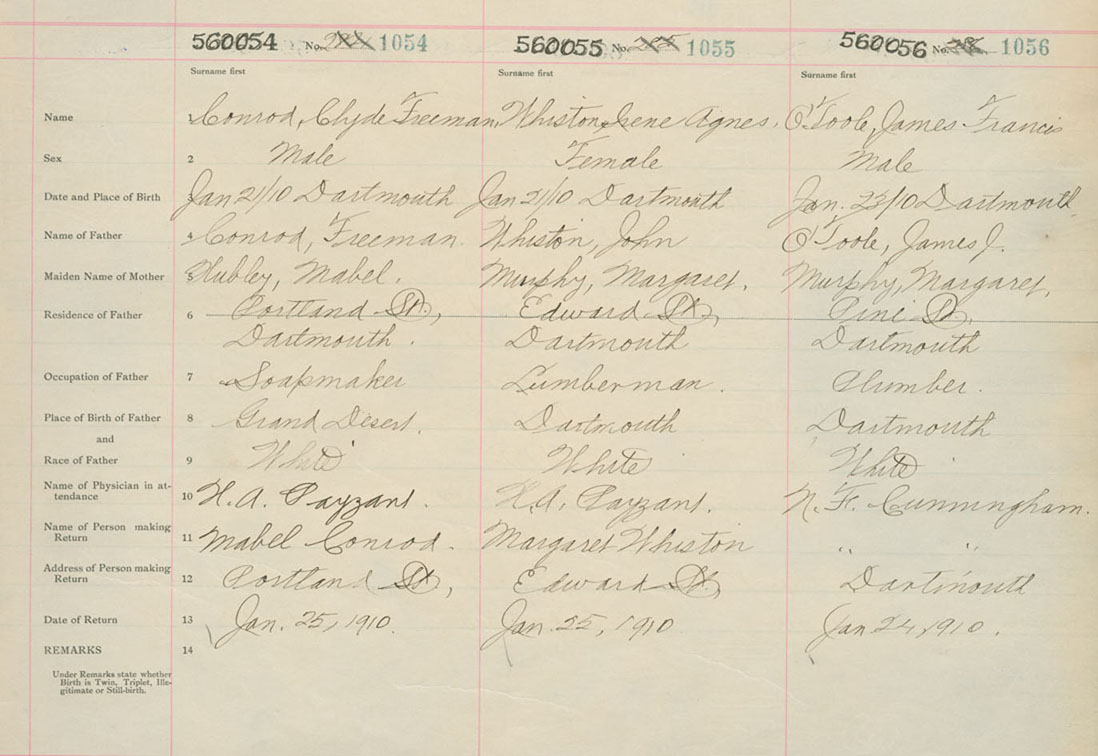 560054 No. 1054 560055 No. 1055 560056 No. 1056
Surname first Surname first Surname first
Name 1 Conrod, Clyde Freeman, Whiston, Irene Agnes, O'Toole, James Francis
Sex 2 Male Female Male
Date and Place of Birth 3 Jan 21/10 Dartmouth Jan 21/10 Dartmouth Jan. 23/10 Dartmouth
Name of Father 4 Conrod, Freeman. Whiston, John O'Toole, James J.
Maiden Name of Mother 5 Hubley, Mabel. Murphy, Margaret. Murphy, Margaret,
Residence of Father 6 Portland St., Edward St., Pine St.,
Dartmouth. Dartmouth Dartmouth
Occupation of Father 7 Soapmaker Lumberman. Plumber.
Place of Birth of Father 8 Grand Desert. Dartmouth Dartmouth
and
Race of Father 9 White White White
Name of Physician in at-
tendance 10 H. A. Payzant. H. A. Payzant. N. F. Cunningham.
Name of Person making
Return 11 Mabel Conrod. Margaret Whiston " "
Address of Person making
Return 12 Portland St., Edward St., Dartmouth
Date of Return 13 Jan. 25, 1910. Jan. 25, 1910 Jan 24, 1910.
REMARKS 14
Under Remarks state whether
Birth is Twin, Triplet, Ille-
gitimate or Still-birth.